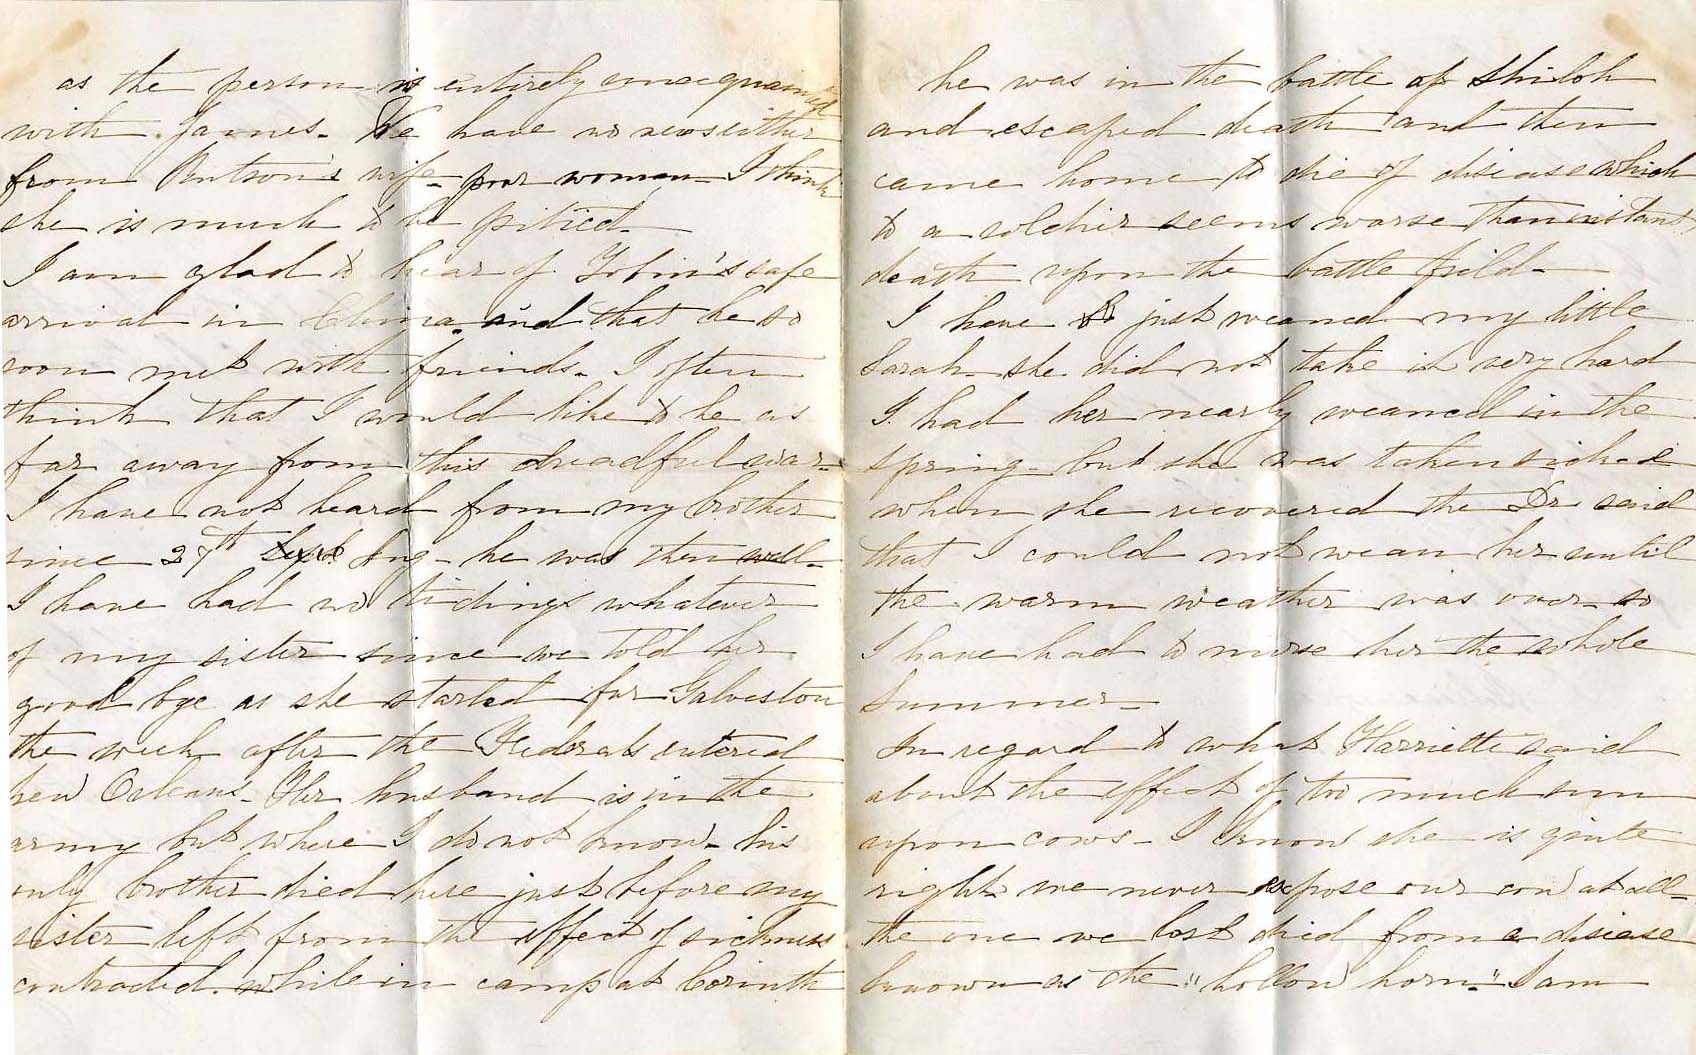 as the person is entirely unacquainted
with James. We have no news either
from Butson's wife - poor woman - I think
she is much to be pitied -
I am glad to hear of Tobin's safe
arrival in China - and that he so
soon met with friends - I often
think that I would like to be as
far away from this dreadful war -
I have not heard from my brother
since 27th Sept Aug - he was then well -
I have had no tidings whatever
of my sister since we told her
good bye as she started for Galveston
the week after the Federals entered
New Orleans - Her husband is in the
army but where I do not know - his
only brother died here just before my
sister left from the effect of sickness
contracted while in camp at Corinth
he was in the battle of Shiloh
and escaped death and then
came home to die of disease which
to a soldier seems worse than instant
death upon the battle field -
I have just weaned my little
Sarah - she did not take it very hard
I had her nearly weaned in the
spring - but she was taken sick - &
when she recovered the Dr said
that I could not wean her until
the warm weather was over - so
I have had to nurse her the whole
summer -
In regard to what Harriette said
about the effect of too much sun
upon cows - I know she is quite
right we never expose our cow at all -
the one we lost died from a disease
known as the "hollow horn." I am